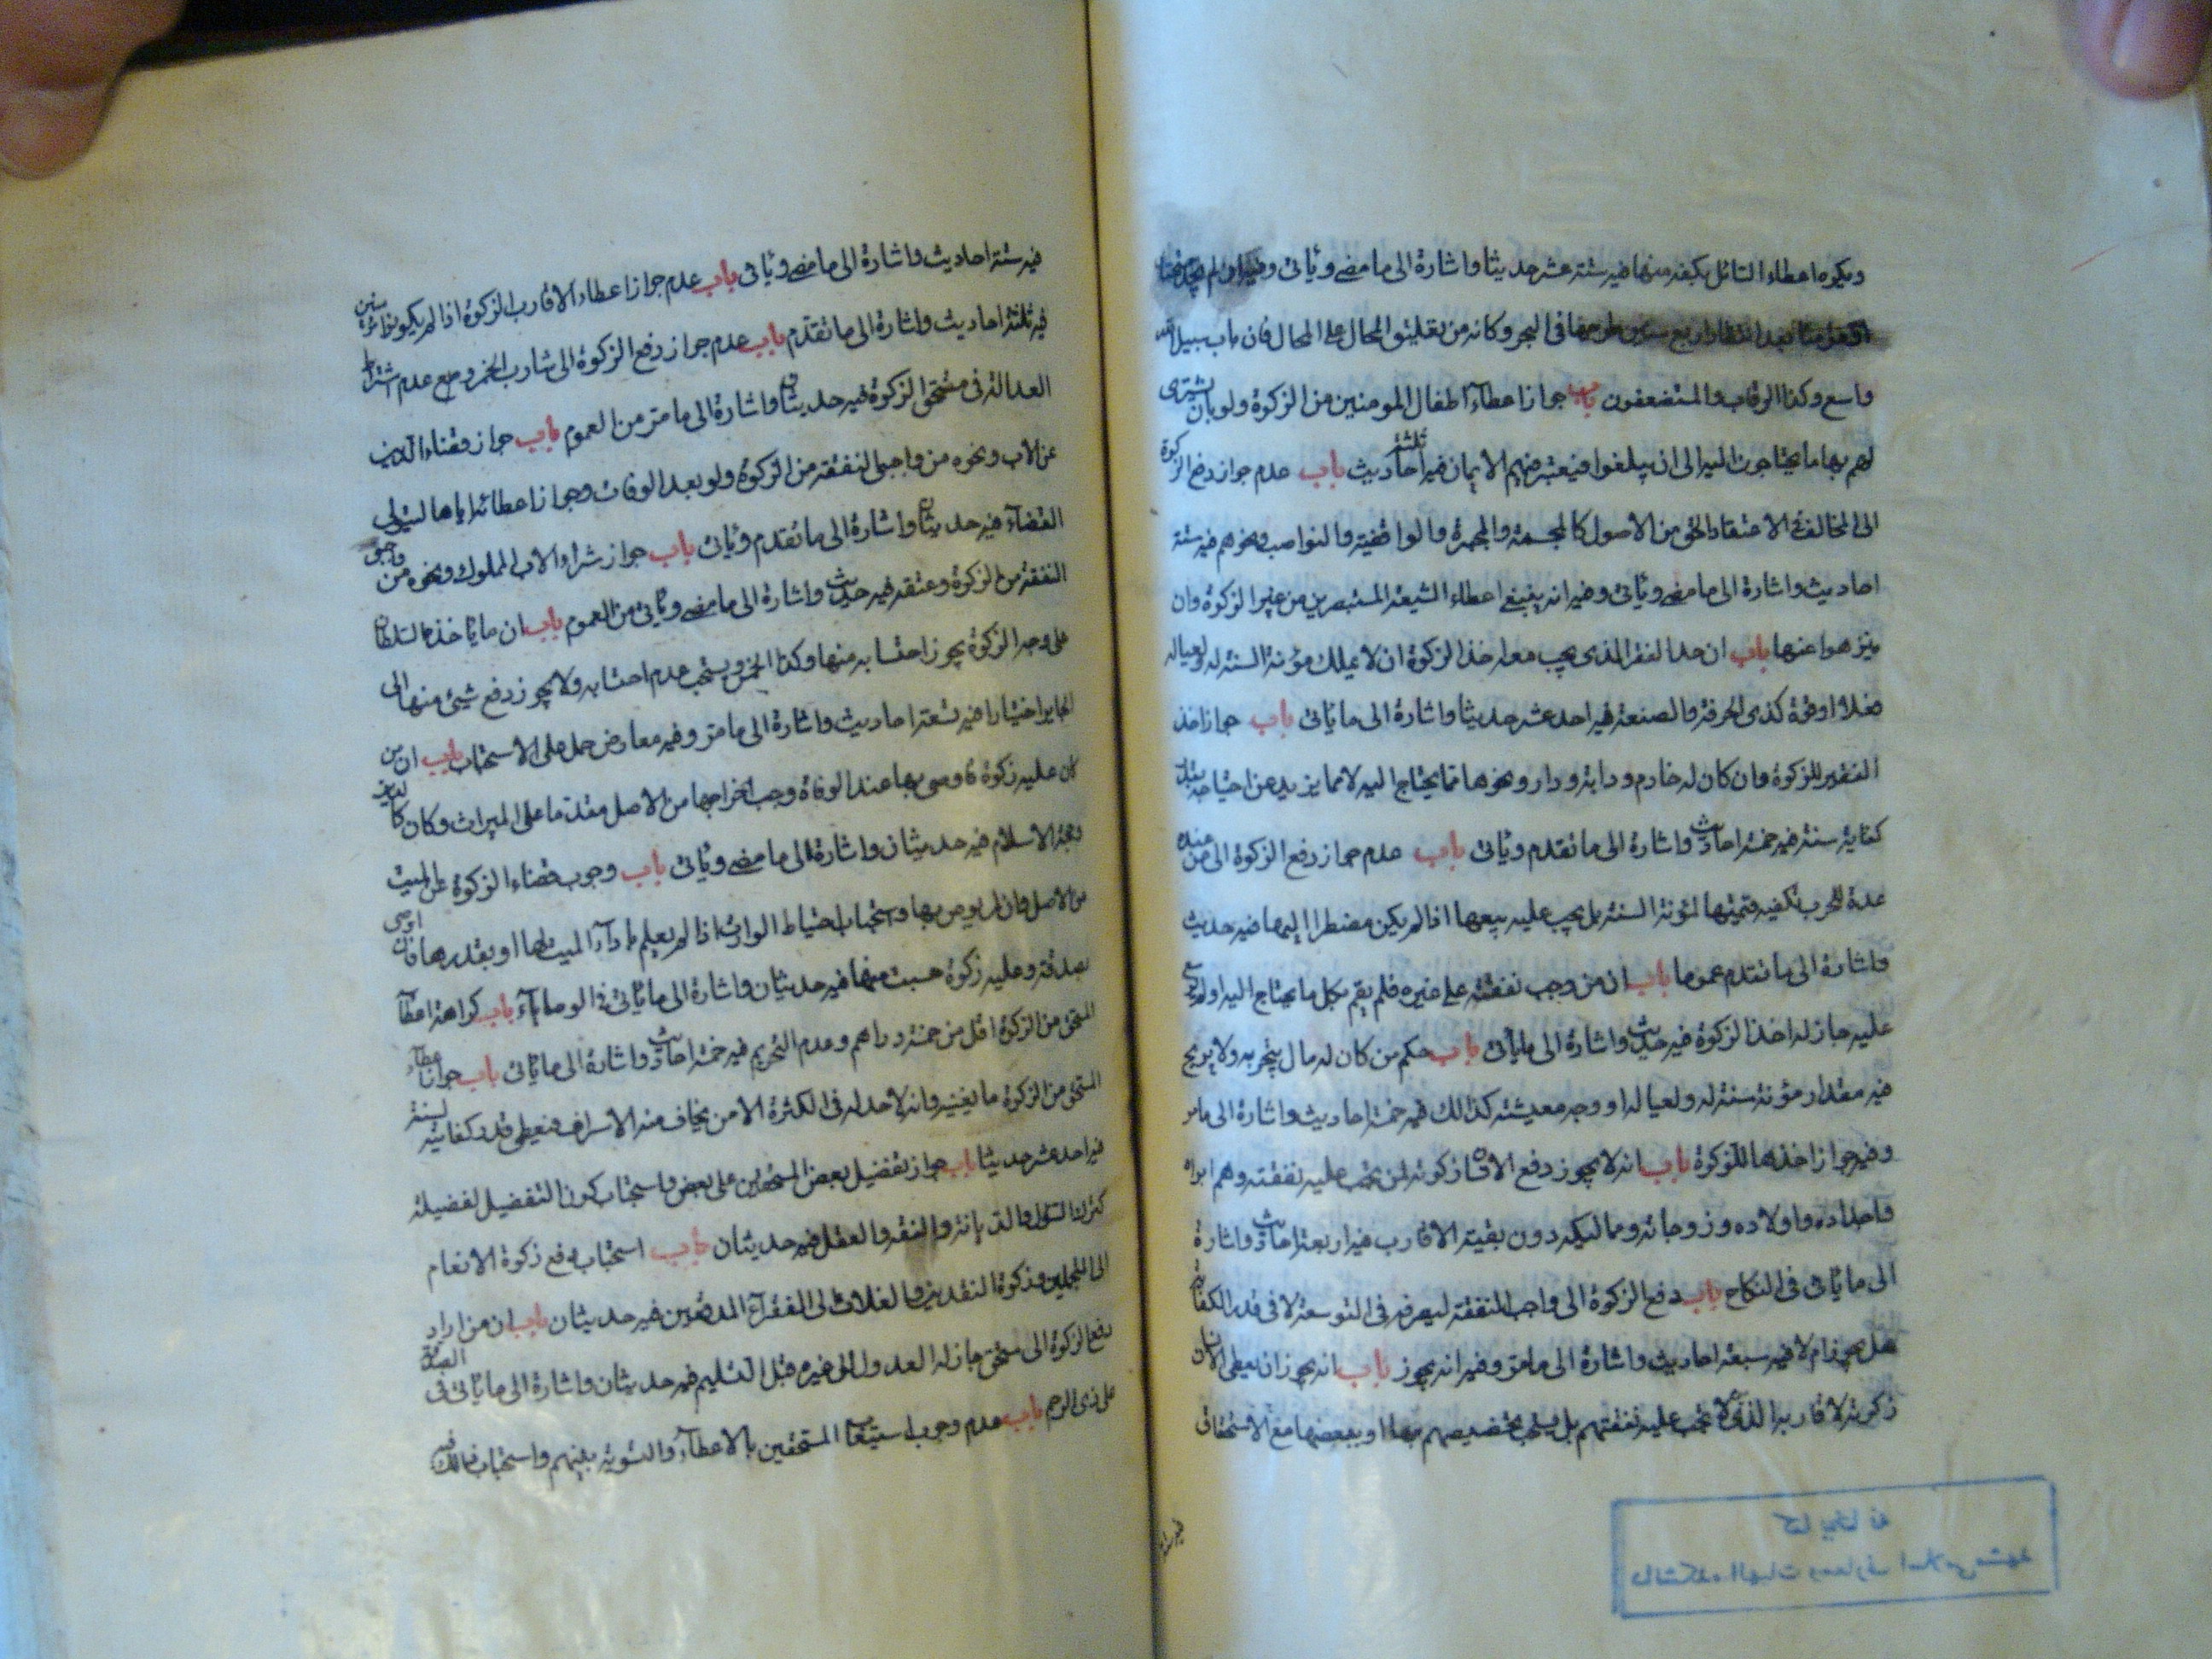 ويكره اعطاء السائل بكفه منها فيه ستة عشر حديثا واشارة الى ما مضى ويأتى
واسع وكذا الرقاب والمستضعفون باب جواز اعطاء اطفال المومنين من الزكوة ولو بان يشترى
لهم بها ما يحتاجون اليه الى ان يبلغوا فيعتبر فيهم الايمان فيه ثلثة احاديث باب عدم جواز دفع الزكوة
الى المخالف فى الاعتقاد الحق من الاصول كالمجسمة والمجبرة والواقفية والنواصب ونحوهم فيه ستة
احاديث واشارة الى ما مضى ويأتى وفيه انه ينبغى اعطاء الشيعة المستبصرين من غير الزكوة وان
ينزهوا عنها باب ان حد الفقر الذى يجب معه اخذ الزكوة ان لا يملك مؤنة السنة له ولعياله
فعلا او قوة كذى الحرفة والصنعة فيه احد عشر حديثا واشارة الى ما يأتى باب جواز اخذ
الفقير للزكوة وان كان له خادم ودابة ودار ونحوها مما يحتاج اليه لا مما يزيد عن احتياجه بقدر
كفاية سنة فيه خمسة احاديث واشارة الى ما تقدم ويأتى باب عدم جواز دفع الزكوة الى من عنده
عدة للحرب تكفيه قيمتها لمؤنة السنة بل يجب عليه بيعها اذا لم يكن مضطرا اليها فيه حديث
واشارة الى ما تقدم عموما باب ان من وجب نفقته على غيره فلم يقم بكل ما يحتاج اليه او لم يوسع
عليه جاز له اخذ الزكوة فيه حديث واشارة الى ما يأتى باب حكم من كان له مال يتجر به ولا يربح
فيه مقدار مؤنة سنة له ولعياله او وجه معيشته كذالك فيه خمسة احاديث واشارة الى ما مر
وفيه جواز اخذها للزكوة باب انه لا يجوز دفع الانسان زكوته لمن تجب عليه نفقته وهم ابواه
واجداده واولاده وزوجاته ومماليكه دون بقية الاقارب فيه اربعة احاديث واشارة
الى ما يأتى فى النكاح باب دفع الزكوة الى واجب النفقة ليصرفه فى التوسعة لا فى قدر الكفاية
هل يجوز ام لا فيه سبعة احاديث واشارة الى ما مر وفيه انه يجوز باب انه يجوز ان يعطى الانسان
زكوته لاقاربه الذين لا تجب عليه نفقتهم بل يستحب تخصيصهم بها او ببعضها مع الاستحقاق
فيه ستة
فيه ستة احاديث واشارة الى ما مضى ويأتى باب عدم جواز اعطاء الاقارب الزكوة اذا لم يكونوا مؤمنين
فيه ثلثة احاديث واشارة الى ما تقدم باب عدم جواز دفع الزكوة الى شارب الخمر ومع عدم اشتراط
العدالة فى مستحق الزكوة فيه حديثان واشارة الى ما مر من العموم باب جواز قضاء الدين
عن الاب ونحوه من واجبى النفقة من الزكوة ولو بعد الوفات وجواز اعطائه اياها ليتولى
القضاء فيه حديثان واشارة الى ما تقدم ويأتى باب جواز شراء الاب المملوك ونحوه من واجبى
النفقة من الزكوة وعتقه فيه حديث واشارة الى ما مضى ويأتى من العموم باب ان ما يأخذه السلطان
على وجه الزكوة يجوز احتسابه منها وكذا الخمس ويستحب عدم احتسابه ولا يجوز دفع شيئ منها الى
الجاير اختيارا فيه تسعة احاديث واشارة الى ما مر وفيه معارض حمل على الاستحباب باب ان من
كان عليه زكوة فاوصى بها عند الوفاة وجب اخراجها من الاصل مقدما على الميراث وكان كالدين
وحجة الاسلام فيه حديثان واشارة الى ما مضى ويأتى باب وجوب قضاء الزكوة عن الميت
من الاصل وان لم يوص بها واستحباب احتياط الوارث اذا لم يعلم بادآء الميت لها او بقدرها فان اوصى
بصدقة وعليه زكوة حسبت منها فيه حديثان واشارة الى ما يأتى فى الوصايا باب كراهة اعطاء
المستحق من الزكوة اقل من خمسة دراهم وعدم التحريم فيه خمسة احاديث واشارة الى ما يأتى باب جواز اعطاء
المستحق من الزكوة ما يغنيه وانه لا حد له فى الكثرة الا من يخاف منه الاسراف فيعطى قدر كفايته لسنة
فيه احد عشر حديثا باب جواز تفضيل بعض المستحقين على بعض واستحباب كون التفضيل لفضيلة
كترك السؤال والديانة والفقه والعقل فيه حديثان باب استحباب دفع زكوة الانعام
الى المتجملين وزكوة النقدين والغلات الى الفقرآء المدقعين فيه حديثان باب ان من اراد
دفع الزكوة الى مستحق جاز له العدول الى غيره قبل التسليم فيه حديثان واشارة الى ما يأتى فى الصدقة
على ذى الرحم باب عدم وجوب استيعاب المستحقين بالاعطاء والتسوية بينهم واستحباب ذالك
كتابخانه
دانشكده الهيات ومعارف اسلامى مشهد